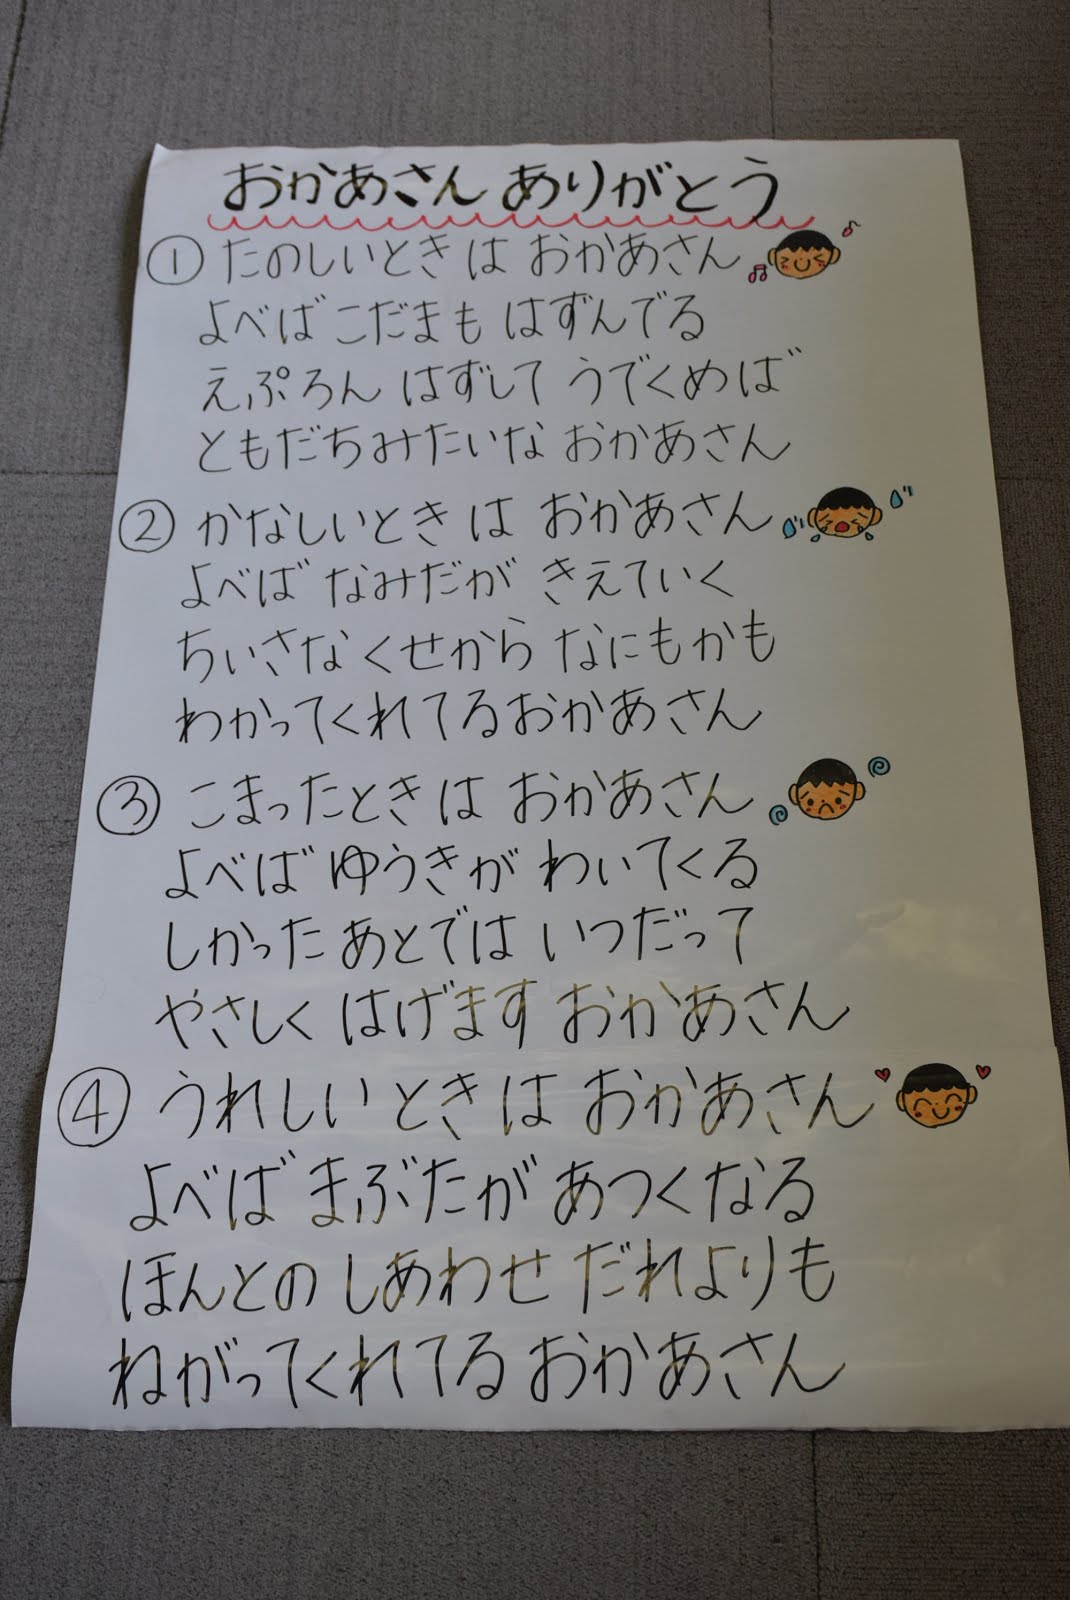 おかあさん ありがとう
① たのしいときは おかあさん
よべば こだまも はずんでる
えぷろん はずして うでくめば
ともだちみたいな おかあさん
② かなしいときは おかあさん
よべば なみだが きえていく
ちいさなくせから なにもかも
わかってくれてるおかあさん
③ こまったときは おかあさん
よべば ゆうきが わいてくる
しかった あとでは いつだって
やさしく はげます おかあさん
④ うれしい ときは おかあさん
よべば まぶたが あつくなる
ほんとの しあわせ だれよりも
ねがってくれてる おかあさん